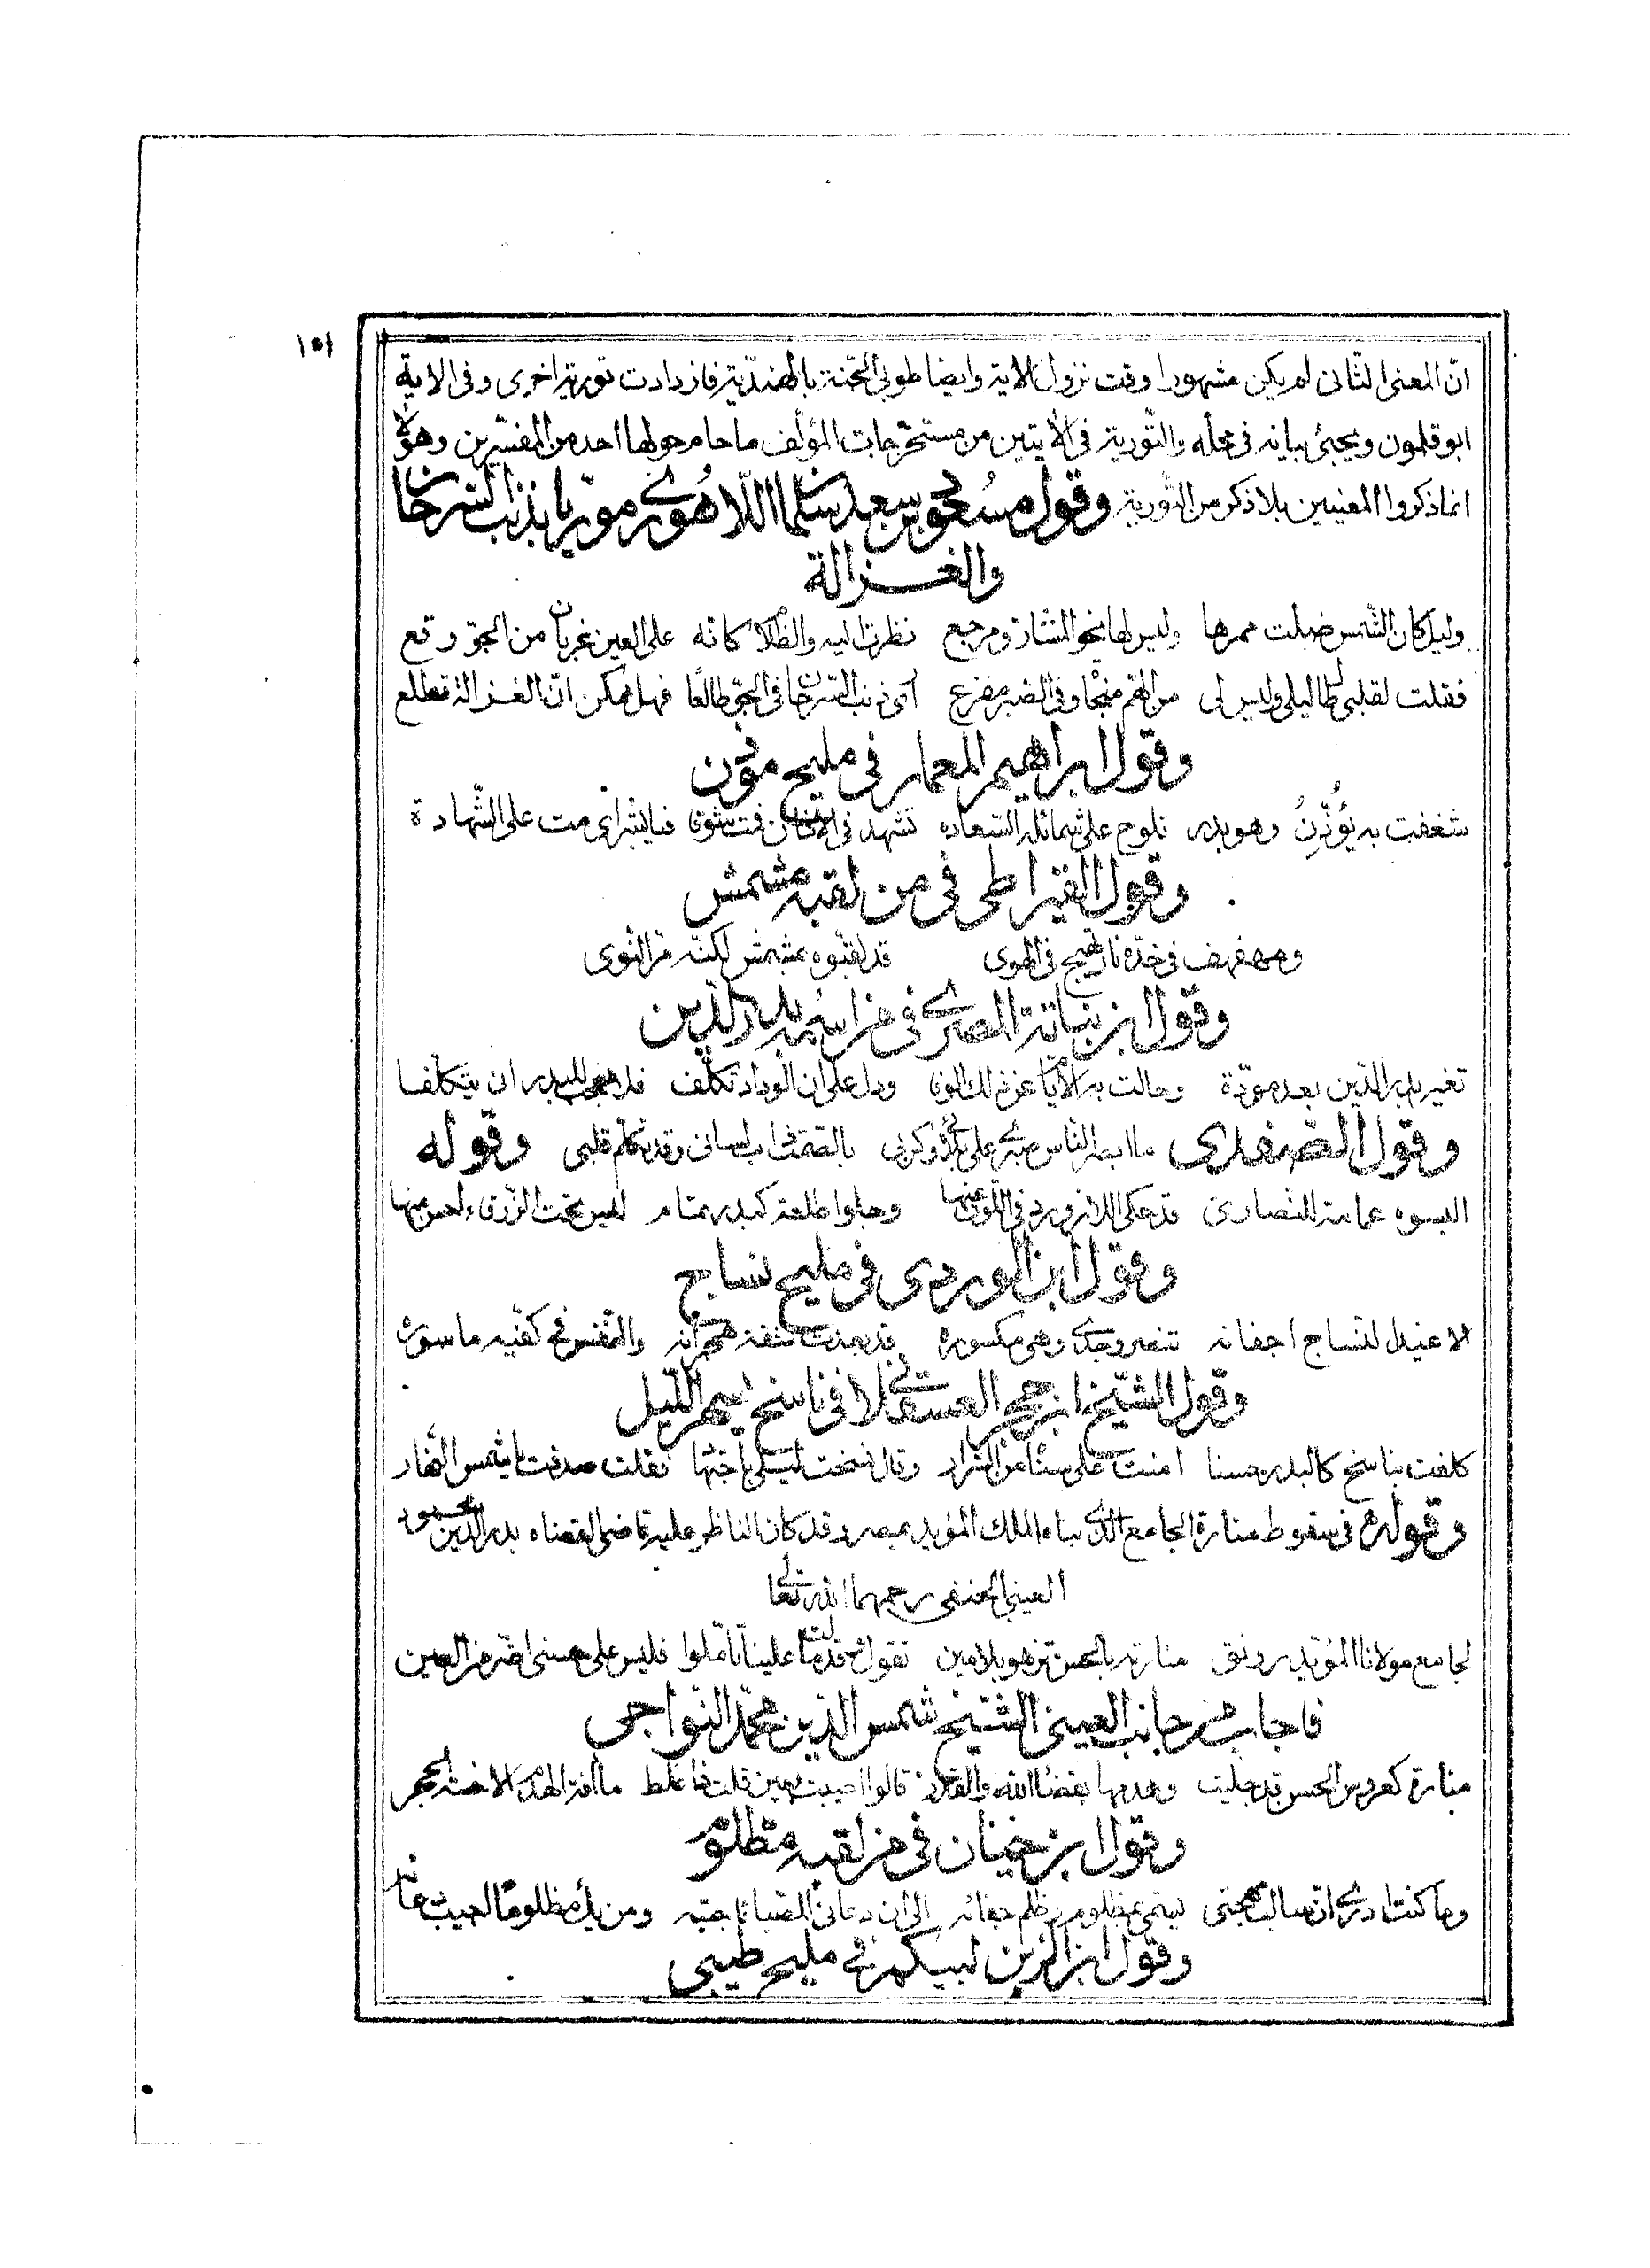 ١٥١
انّ المعنى الثّانى لم يكن مشهورا وقت نزول الاية وايضا طوبى الجنة بالهنديّة فازدادت تورية اخرى وفى الاية
ابوقلمون ويجيئ بيانه فى محله والتّورية فى الايتين من مستخرجات المؤلف ما حام حولها احد من المفسّرين وهؤلاء
انما ذكروا المعنيين بلا ذكر من التّورية وقول مسعود بن سعد بن سلمان اللاهورى مورّيا بذنب السرحان
والغزالة
وليل كان الشّمس ضلت ممرها وليس لها نحو المشارق مرجع نظرت اليه والظلام كانه على العين غربان من الجوّ وقع
فقلت لقلبى طال ليلى وليس لى من الهم منجا وفى الصبر مفزع ارى ذنب السّرحان فى الجوّ طالعا فهل ممكن انّ الغزالة تطلع
وقول ابراهيم المعمار فى مليح مؤذن
شغفت به يؤذّن وهو بدر تلوح على شمائله السّعاده تشهد فى الاذان فمت شوقا فيا بشراى مت على الشّهادة
وقول القيراطى فى من لقبه مشمش
ومهفهف فى خدّه نار تهيج فى الهوى قد لقبّوه بمشمش لكنّه مرّ النّوى
وقول ابن نباتة المصرى فى من اسمه بدر الدّين
تغير بدر الدّين بعد مودّة وحالت به الايّام عن ذلك الوفا ودل على ان الوداد تكلّف فلا عجب للبدر ان يتكلّفا
وقول الصّفدى ما ابصر النّاس صبرى على بلائى وكربى بالصّمت لسانى وقد تكلم قلبى وقوله
البسوه عمامة للنّصارى قد حكى اللازورد فى اللون عنها وجلوا طلعة كبدر تمام ليس تحت الزّرق احسن منها
وقول ابن الوردى فى مليح نساج
الاغيد النّساج اجفانه تنصر وجدى وهى مكسوره قد بعدت شقة هجرانه والنّفس فى كفّيه ماسوره
وقول الشّيخ ابن حجر العسقلانى فى ناسخ اسهر اللّيل
كلفت بناسخ كالبدر حسنا امنت على من السّرار وقال نسخت ليلى باجتها فقلت صدقت يا شمس النّهار
وقوله فى سقوط منارة الجامع الّذى بناه الملك المؤيد بمصر وقد كان الناظر عليه قاضى القضاه بدر الدين محمود
العينى الحنفى رحمهما الله تعالى
لجامع مولانا المؤيّد رونق منارته بالحسن تزهو بلا مين تقول وقد مالت علينا تاملوا فليس على حسنى اضرّ من العين
فاجاب من جانب العينى الشّيخ شمس الدّين محمّد النّواجى
منارة كعروس الحسن قد جليت وهدمها بقضاء الله والقدر قالوا اصيبت بعين قلت ذا غلط ما افة الهدم الا خسّة الحجر
وقول ابن فى من لقبه مظلوم
وما كنت ادرى انّ سالب مهجتى يسمّى بمظلوم وظلم جفائه الى ان دعانى للصّبا فاجبته ومن يك مظلوما اجيب دعائه
وقول ابن الزين لبيكم فى مليح طبيب